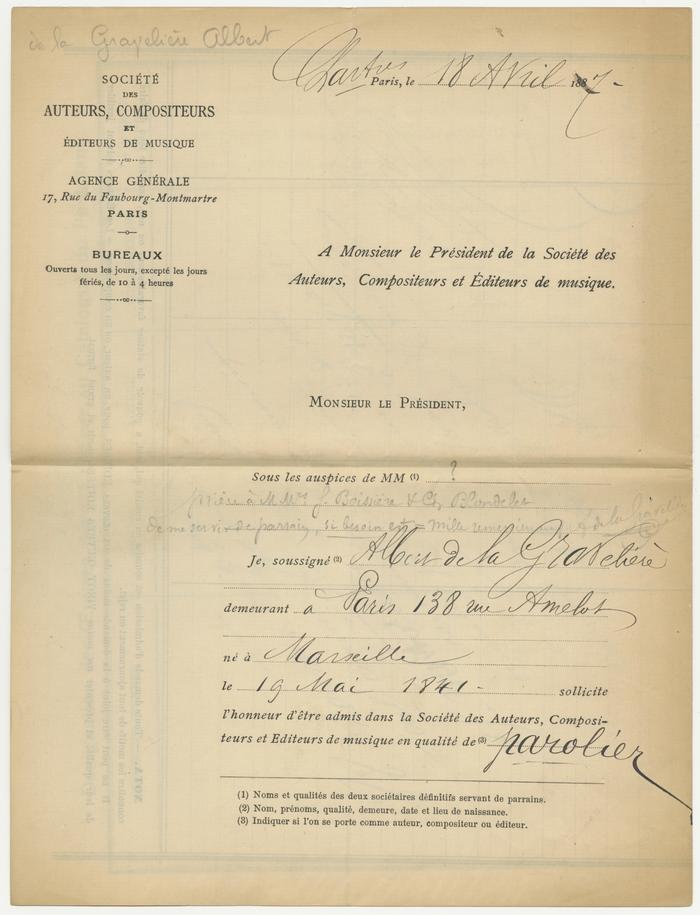 de la Gravelière Albert
Chartres
Paris, le 18 Avril 1887-
SOCIÉTÉ
DES
AUTEURS, COMPOSITEURS
ET
ÉDITEURS DE MUSIQUE
AGENCE GÉNÉRALE
17, Rue du Faubourg-Montmartre
PARIS
BUREAUX
Ouverts tous les jours, excepté les jours
fériés, de 10 à 4 heures
A Monsieur le Président de la Société des
Auteurs, Compositeurs et Éditeurs de musique.
MONSIEUR LE PRÉSIDENT,
Sous les auspices de MM (1) ?
prière à M Mrs J. Boissière & Ch. Blondelet
de me servir de parrain, si besoin est = mille A de la Gravelière
Je, soussigné (2) Albert de la Gravelière
demeurant à Paris 138 rue Amelot
né à Marseille
le 19 Mai 1841 - sollicite
l'honneur d'être admis dans la Société des Auteurs, Composi-
teurs et Editeurs de musique en qualité de (3) parolier
(1) Noms et qualités des deux sociétaires définitifs servant de parrains.
(2) Nom, prénoms, qualité, demeure, date et lieu de naissance.
(3) Indiquer si l'on se porte comme auteur, compositeur ou éditeur.